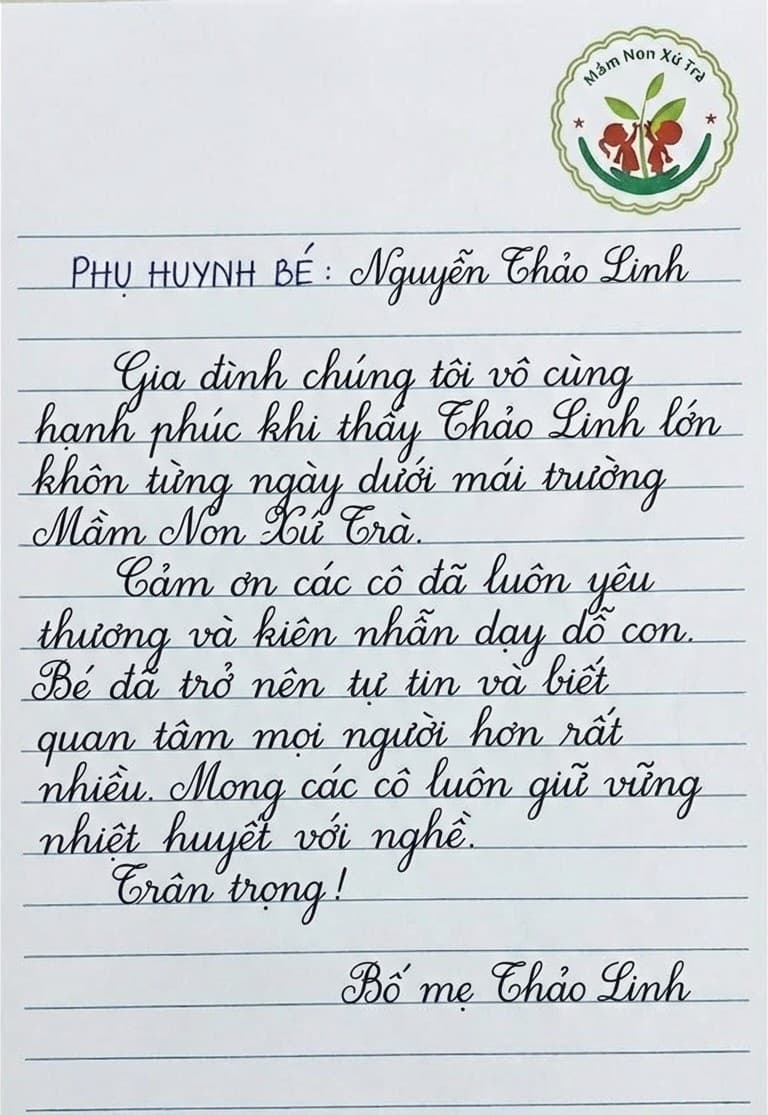 Mầm Non Xứ Trà
PHỤ HUYNH BÉ: Nguyễn Thảo Linh
Gia đình chúng tôi vô cùng
hạnh phúc khi thấy Thảo Linh lớn
khôn từng ngày dưới mái trường
Mầm Non Xứ Trà.
Cảm ơn các cô đã luôn yêu
thương và kiên nhẫn dạy dỗ con.
Bé đã trở nên tự tin và biết
quan tâm mọi người hơn rất
nhiều. Mong các cô luôn giữ vững
nhiệt huyết với nghề.
Trân trọng!
Bố mẹ Thảo Linh